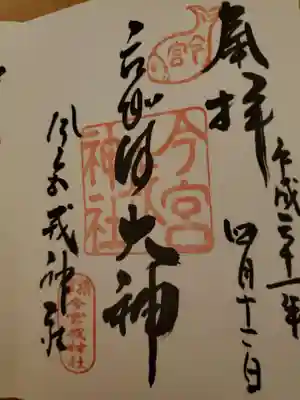 奉拝
平成三十一年
四月十二日
大神
今宮戎神社
今宮
今宮戎神社
今宮戎神社